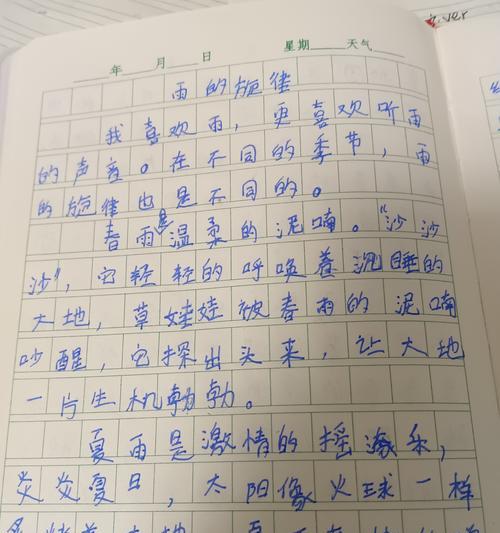 ver
年 月 日 星期 天气
雨的旋律
我喜欢雨，更喜欢听雨
的声音。在不同的季节，雨
的旋律也是不同的。
春雨是温柔的泥喃。“沙沙
沙”，它轻轻的呼唤着沉睡的
大地，草娃娃被春雨的泥喃
吵醒，它探出头来，让大地
一片生机勃勃。
夏雨是激情的摇滚乐，
炎炎夏日，太阳像火球一样